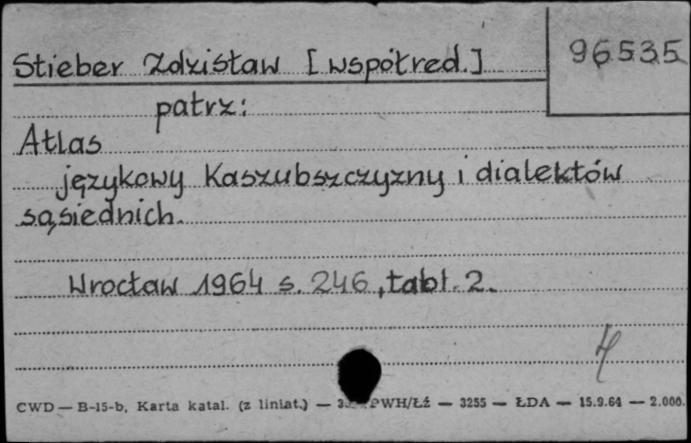 Stieber Zdzisław [współred.] 96535
patrz:
Atlas
językowy Kaszubszczyzny i dialektów
sąsiednich.
Wrocław 1964 s. 246, tabl. 2.
4
CWD — B-15-b, Karta katal. (z liniat.) — PWH/Łź — 3255 — ŁDA — 15.9.64 — 2.000.